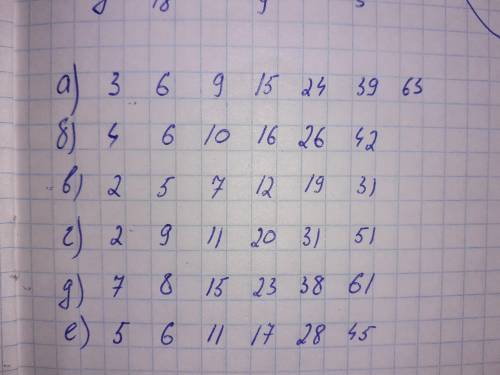 18 9
а) 3 6 9 15 24 39 63
б) 4 6 10 16 26 42
в) 2 5 7 12 19 31
г) 2 9 11 20 31 51
д) 7 8 15 23 38 61
е) 5 6 11 17 28 45